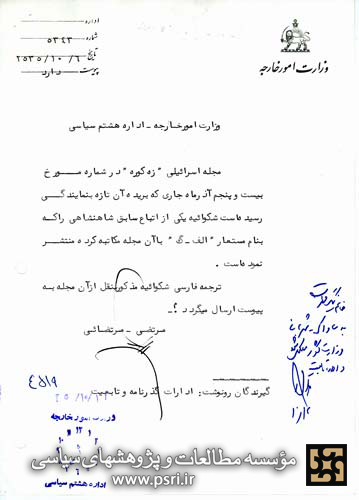 وزارت امور خارجه
اداره
شماره ۵۳۴۳
تاریخ ۲۵۳۵/۱۰/۶
پیوست دارد
وزارت امور خارجه - اداره هشتم سیاسی
مجله اسرائیلی "زه کوره" در شماره مورخ
بیست و پنجم آذر ماه جاری که بریده آن تازه بنمایندگی
رسیده است شکوائیه یکی از اتباع سابق شاهنشاهی را که
بنام مستعار "الف - گ" با آن مجله مکاتبه کرده منتشر
نموده است .
ترجمه فارسی شکوائیه مذکور بنقل از آن مجله به
پیوست ارسال میگردد .
مرتضی - مرتضائی
گیرندگان رونوشت: ادارات گذرنامه و تابعیت
۴۵۱۹
وزارت امور خارجه
اداره هشتم سیاسی
مؤسسه مطالعات و پژوهشهای سیاسی
www.psri.ir